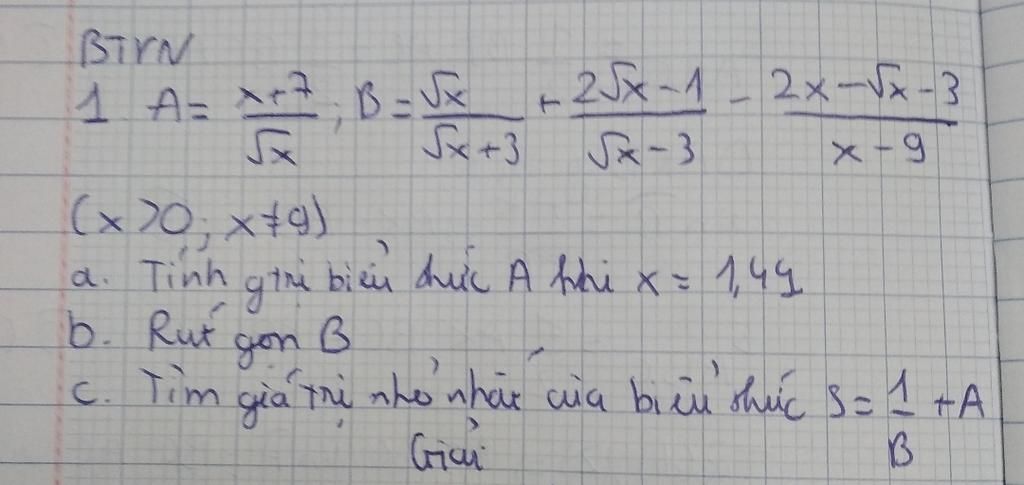 BTVN
1 A = \frac{x+7}{\sqrt{x}} ; B = \frac{\sqrt{x}}{\sqrt{x}+3} + \frac{2\sqrt{x}-1}{\sqrt{x}-3} - \frac{2x-\sqrt{x}-3}{x-9}
(x > 0 ; x ≠ 9)
a. Tính gtrị biểu thức A khi x = 1,44
b. Rút gọn B
c. Tìm giá trị nhỏ nhất của biểu thức S = \frac{1}{B} + A
Giải